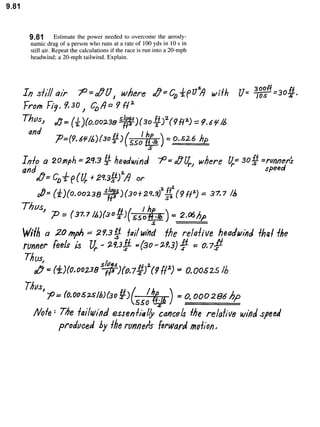 9.81
9.81 Estimate the power needed to overcome the aerody-
namic drag of a person who runs at a rate of 100 yds in 10 s in
still air. Repeat the calculations if the race is run into a 20-mph
headwind; a 20-mph tailwind. Explain.
In still air P = 𝒟U, where 𝒟 = C_D ½ρU²A with U = 300ft/10s = 30 ft/s.
From Fig. 9.30, C_D A = 9 ft²
Thus, 𝒟 = (½)(0.00238 slugs/ft³)(30 ft/s)²(9 ft²) = 9.64 lb
and
P = (9.64 lb)(30 ft/s)(1 hp / 550 ft·lb/s) = 0.526 hp
Into a 20mph = 29.3 ft/s headwind P = 𝒟U_r, where U_r = 30 ft/s = runner's speed
and
𝒟 = C_D ½ρ(U_r + 29.3 ft/s)²A or
𝒟 = (½)(0.00238 slugs/ft³)(30 + 29.3)² ft²/s² (9 ft²) = 37.7 lb
Thus,
P = (37.7 lb)(30 ft/s)(1 hp / 550 ft·lb/s) = 2.06 hp
With a 20 mph = 29.3 ft/s tail wind the relative headwind that the
runner feels is U_r - 29.3 ft/s = (30 - 29.3) ft/s = 0.7 ft/s
Thus,
𝒟 = (½)(0.00238 slugs/ft³)(0.7 ft/s)²(9 ft²) = 0.00525 lb
Thus,
P = (0.00525 lb)(30 ft/s)(1 hp / 550 ft·lb/s) = 0.000286 hp
Note: The tailwind essentially cancels the relative wind speed
produced by the runner's forward motion.